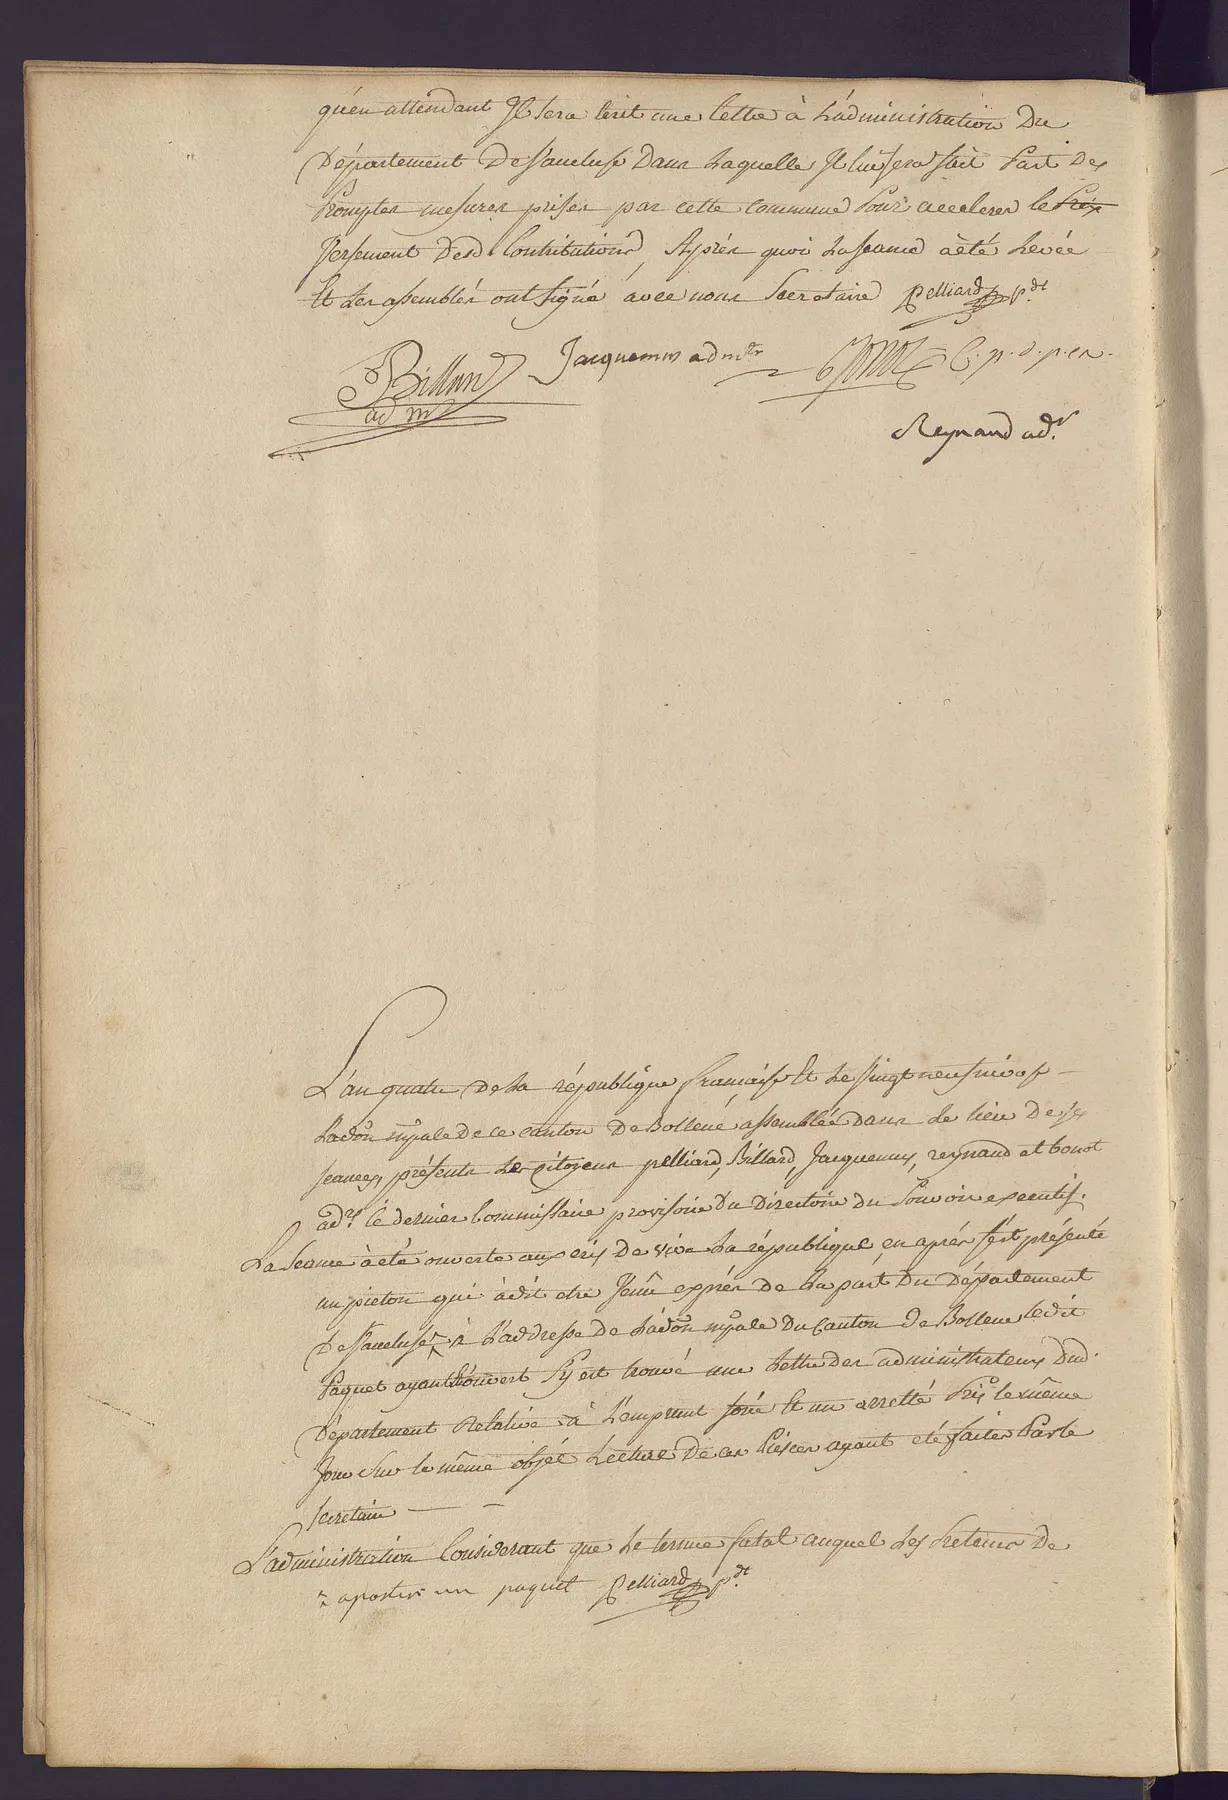 qu'en attendant Il sera écrit une lettre à L'administration Du
Département De Vaucluse Dans Laquelle Il lui sera fait Part Des
Promptes mesures prises par cette commune Pour accelerer le Prix
Versement Desd. Contributions, Après quoi La Seance à été Levée
Et Les assemblés ont Signé avec nous Secretaire Pelliard pdt
Billard Jacquemus admtr C. p. d. p. ex.
adm
Reynaud adr
L'an quatre De La république française Et Le Vingt neuf nivose
L'adon mpale De ce canton De Bollene, assemblée Dans Le lieu De ses
seances, présents Les Citoyens pelliard, Billard, Jacquemus, reynaud et bonot
adrs le dernier Commissaire provisoire Du Directoire Du Pouvoir executif.
La Seance à été ouverte aux cris De vive La république, en après s'est présenté
un pieton qui à dit etre Venu exprès De La part Du Département
De Vaucluse à L'addresse De L'adon mpale Du Canton De Bollene ledit
Paquet ayant ouvert S'y est trouvé une Lettre Des administrateurs Dud.
Département Relative à L'emprunt forcé Et un arretté Pris le même
Jour Sur le même objet Lecture De ces Pièces ayant été faites Par le
secretaire
L'administration Considerant que Le terme fatal auquel Les Preteurs De
aporter un paquet Pelliard pdt